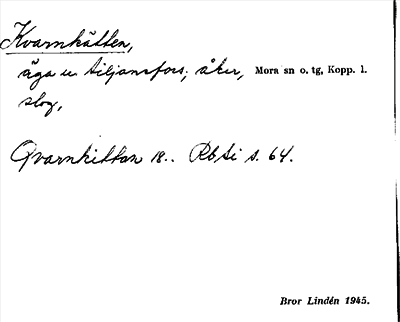 Kvarnhätten,
äga u. Siljansfors; åker, Mora sn o. tg, Kopp. l.
slog,
Qvarnhittan 18.. RbSi s. 64.
Bror Lindén 1945.